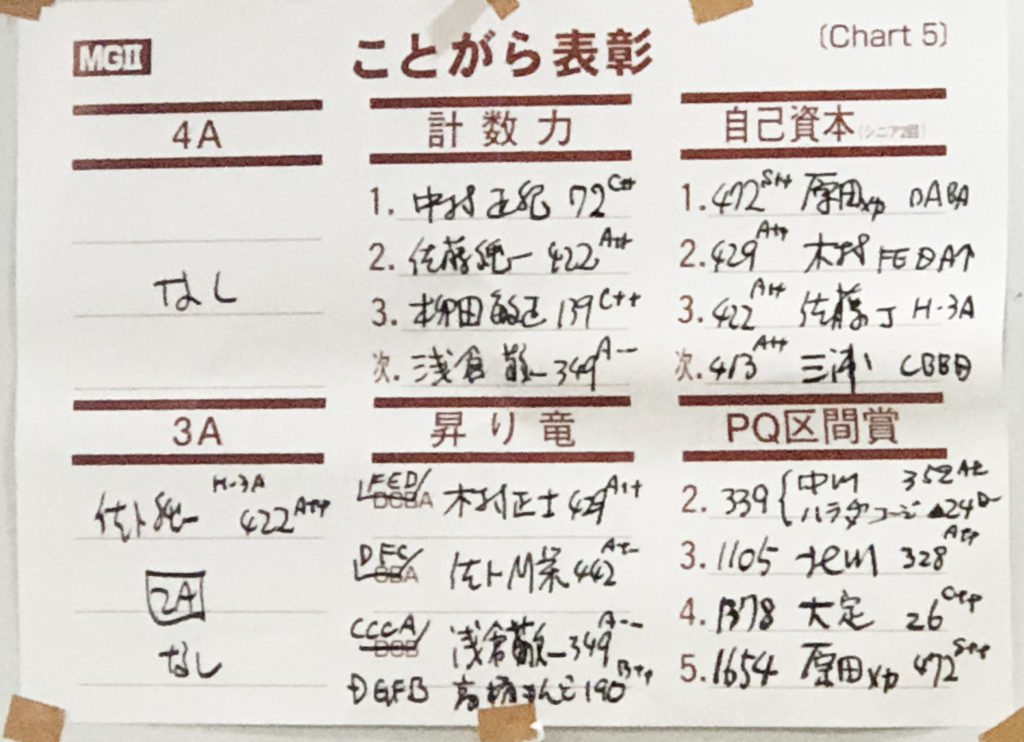 MGⅡ
ことがら表彰
(Chart 5)
4A
なし
計数力
1. 中村正紀 72 C++
2. 佐藤純一 422 A++
3. 柳田 正 139 C++
次. 浅倉 一 349 A--
自己資本(シニア2回)
1. 472 S++ 原田 DABA
2. 429 A++ 木村 FEDA↑
3. 422 A++ 佐藤J H-3A
次. 413 A++ 三浦 CBBB
3A
H-3A
佐ト純一 422 A++
2A
なし
昇り竜
FED
DCBA 木村正士 429 A++
DFC
CBA 佐ト 442
CCCA
DCB 浅倉 一 349 A--
DGFB 高橋 190 B++
PQ区間賞
2. 339 中川 352
ハラダコージ ▲24
3. 1105 北川 328 A++
4. 1378 大定 26 C++
5. 1654 原田 472 S++